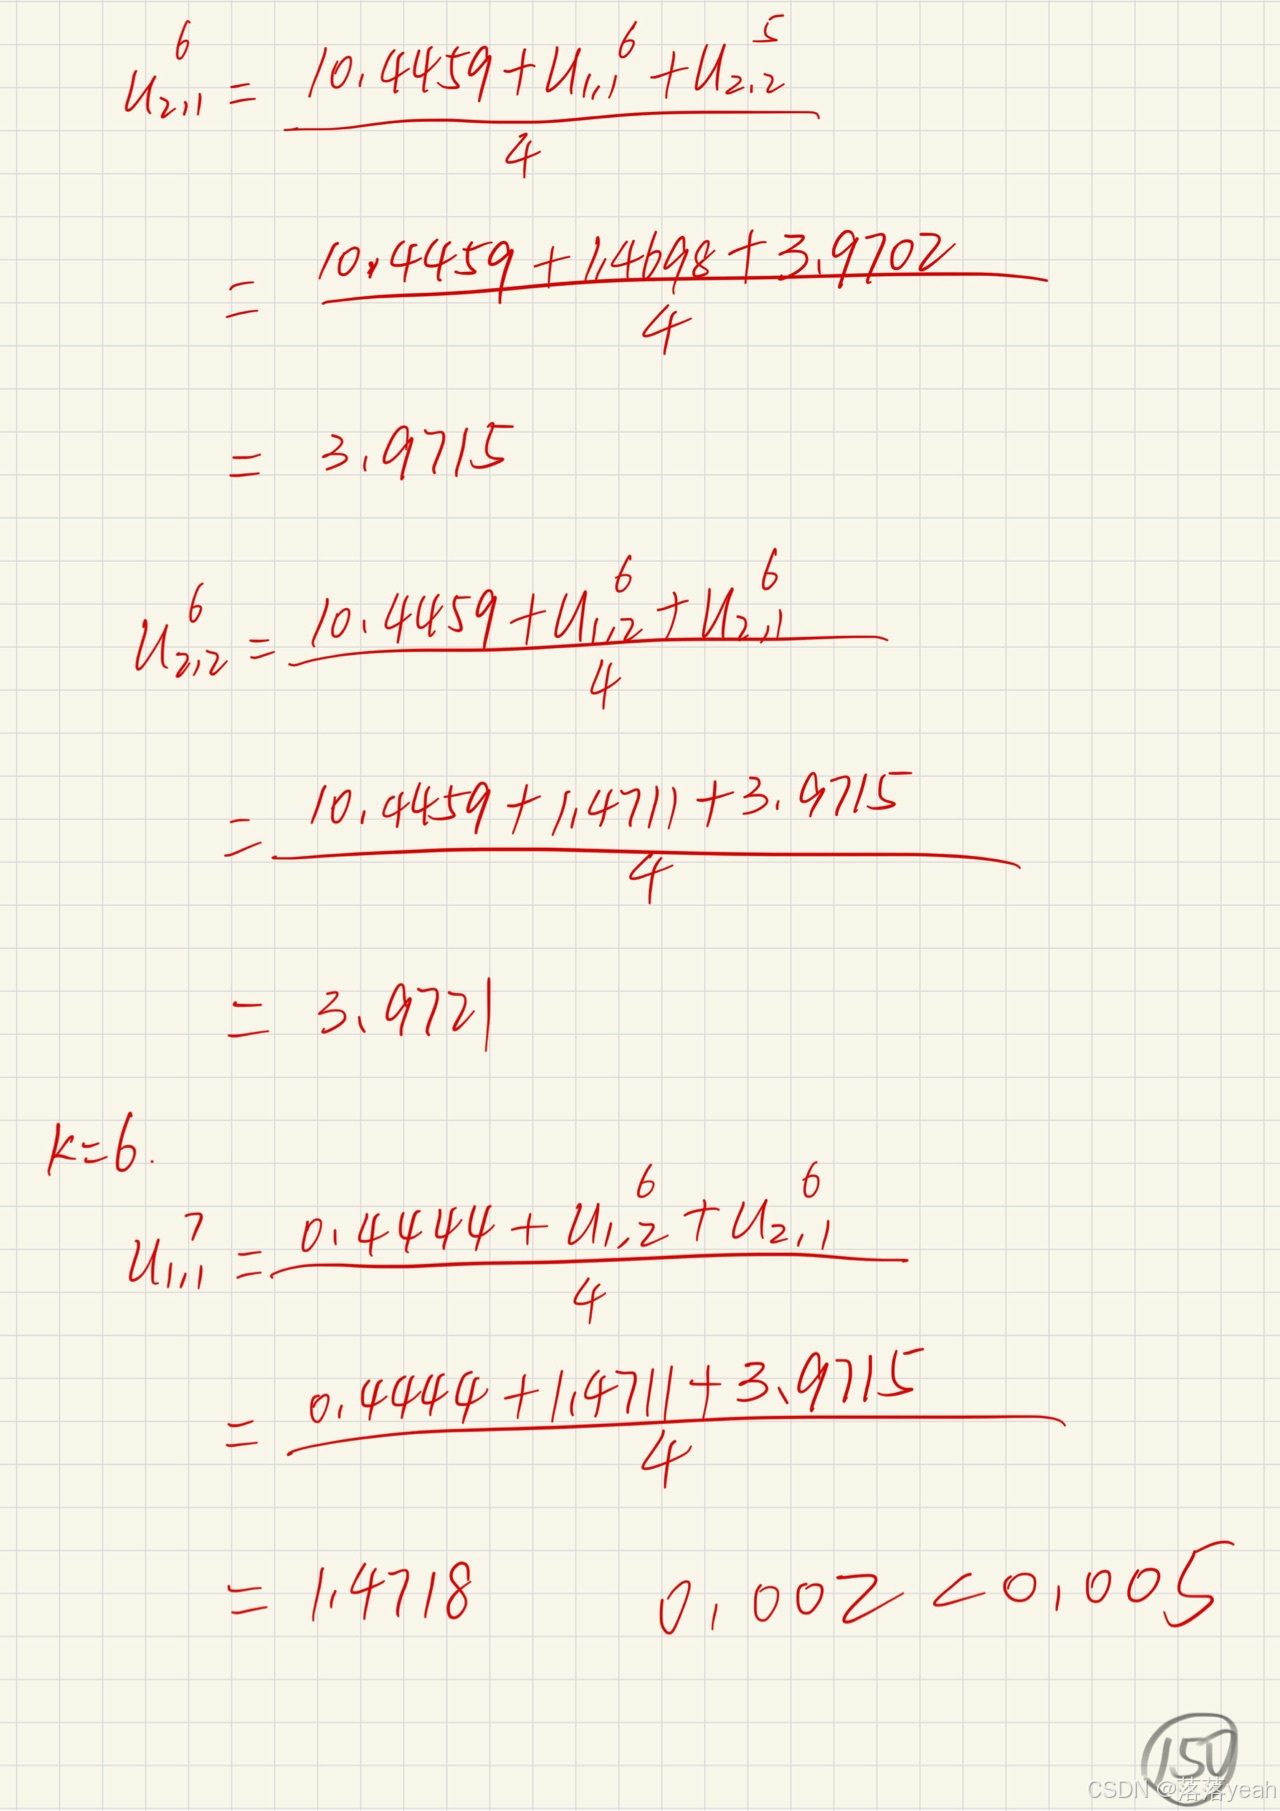 u₂,₁⁶ = (10.4459 + u₁,₁⁶ + u₂,₂⁵) / 4
= (10.4459 + 1.4698 + 3.9702) / 4
= 3.9715
u₂,₂⁶ = (10.4459 + u₁,₂⁶ + u₂,₁⁶) / 4
= (10.4459 + 1.4711 + 3.9715) / 4
= 3.9721
k=6.
u₁,₁⁷ = (0.4444 + u₁,₂⁶ + u₂,₁⁶) / 4
= (0.4444 + 1.4711 + 3.9715) / 4
= 1.4718 0.002 < 0.005
150
CSDN @落落yeah